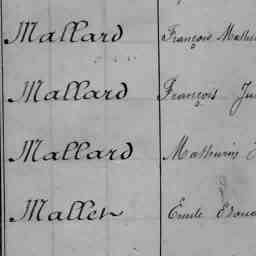 Mallard François Mathu
Mallard François Ju
Mallard Mathurin J
Mallet Emile Edoua